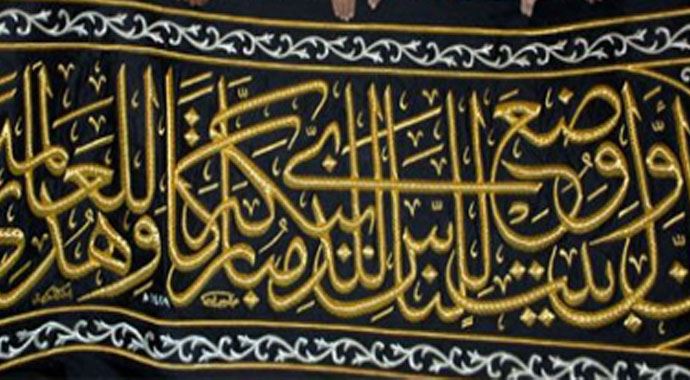 أوّل بيت وضع للنّاس للذي ببكّة مباركًا وهدى للعالم